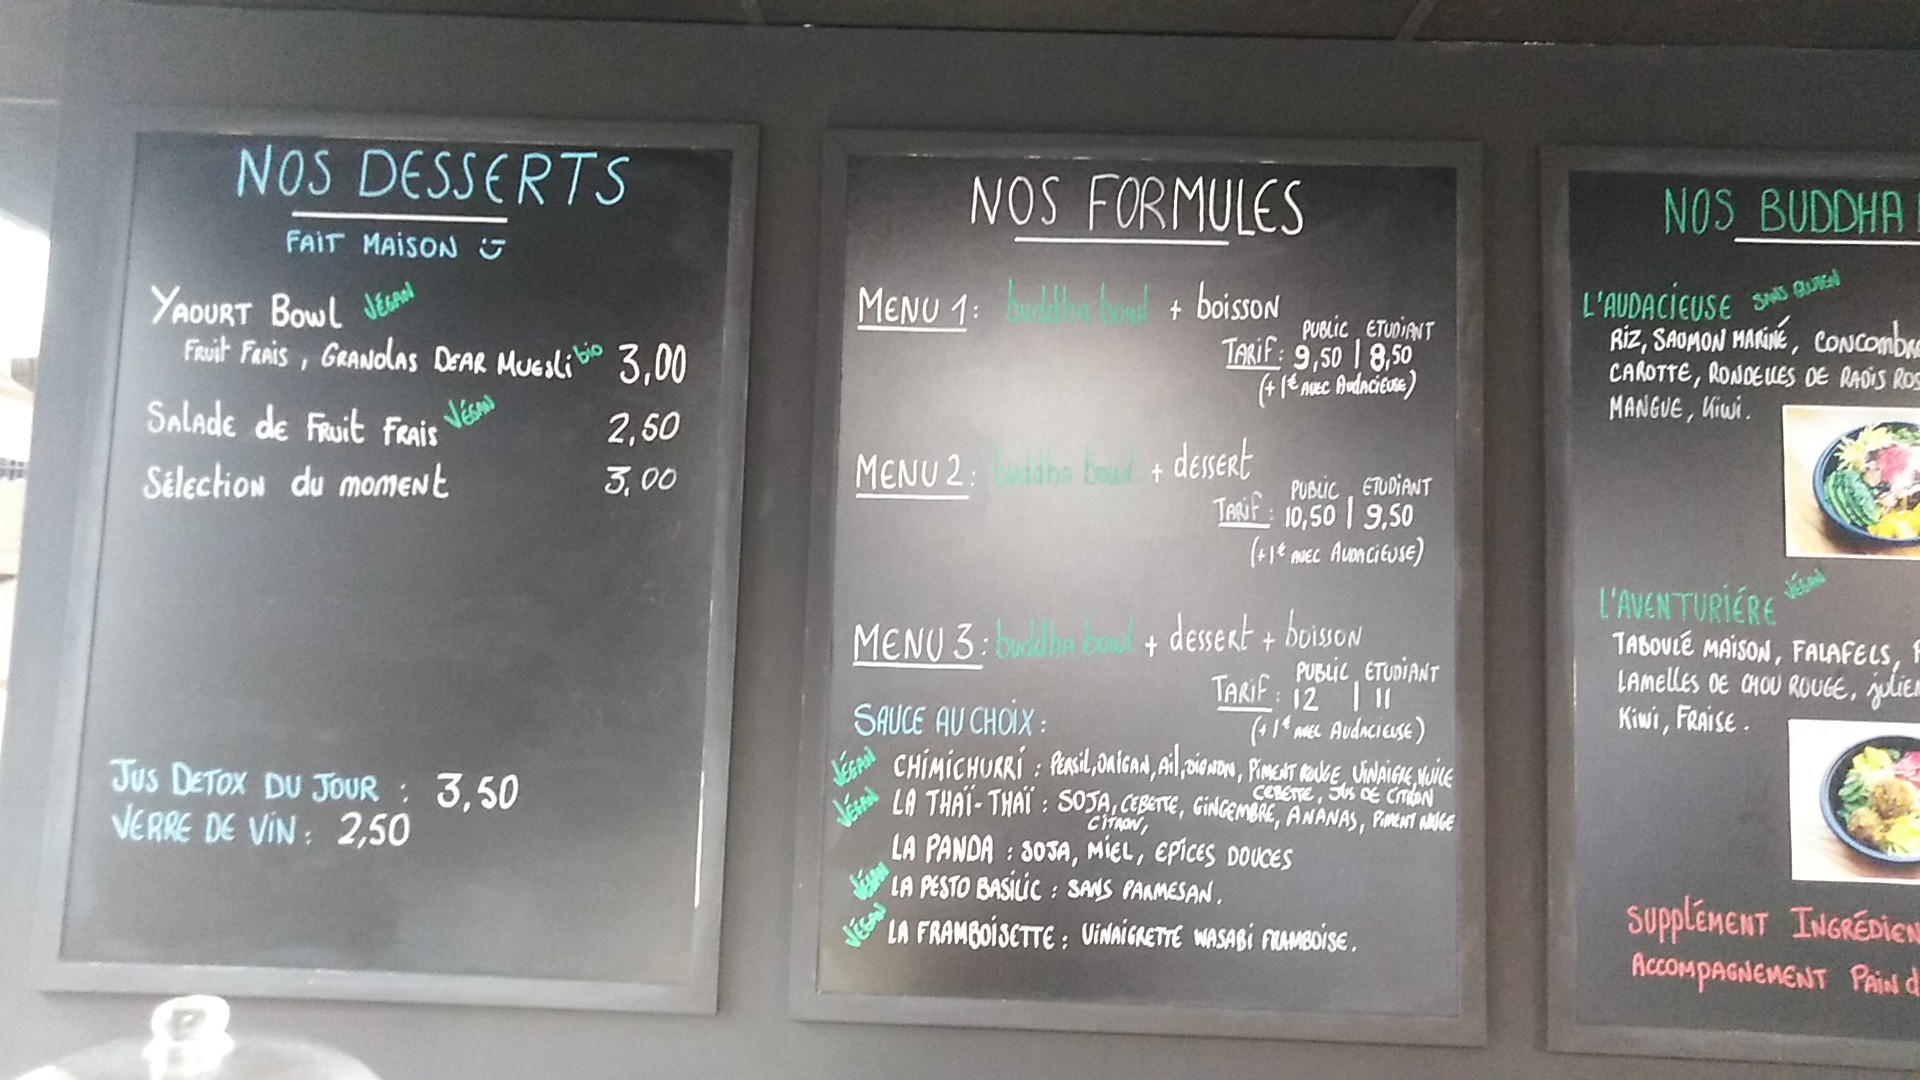 NOS DESSERTS
FAIT MAISON
YAOURT BOWL VÉGAN
FRUIT FRAIS, GRANOLAS DEAR MUESLI bio 3,00
SALADE de FRUIT FRAIS VÉGAN 2,50
SÉLECTION du MOMENT 3,00
JUS DETOX DU JOUR : 3,50
VERRE DE VIN : 2,50
NOS FORMULES
MENU 1 : buddha bowl + boisson
PUBLIC ETUDIANT
TARIF : 9,50 | 8,50
(+1€ AVEC AUDACIEUSE)
MENU 2 : buddha bowl + dessert
PUBLIC ETUDIANT
TARIF : 10,50 | 9,50
(+1€ AVEC AUDACIEUSE)
MENU 3 : buddha bowl + dessert + boisson
PUBLIC ETUDIANT
TARIF : 12 | 11
(+1€ AVEC AUDACIEUSE)
SAUCE AU CHOIX :
VÉGAN CHIMICHURRI : PERSIL, ORIGAN, AIL, OIGNON, PIMENT ROUGE, VINAIGRE, HUILE
CEBETTE, JUS DE CITRON
VÉGAN LA THAÏ-THAÏ : SOJA, CEBETTE, GINGEMBRE, ANANAS, PIMENT ROUGE
CITRON,
LA PANDA : SOJA, MIEL, EPICES DOUCES
VÉGAN LA PESTO BASILIC : SANS PARMESAN.
VÉGAN LA FRAMBOISETTE : VINAIGRETTE WASABI FRAMBOISE.
NOS BUDDHA
L'AUDACIEUSE SANS GLUTEN
RIZ, SAOMON MARINÉ, CONCOMBR
CAROTTE, RONDELLES DE RADIS ROS
MANGUE, Kiwi.
L'AVENTURIÉRE VÉGAN
TABOULÉ MAISON, FALAFELS,
LAMELLES DE CHOU ROUGE, julien
Kiwi, FRAISE.
SUPPLÉMENT INGRÉDIEN
ACCOMPAGNEMENT PAIN d